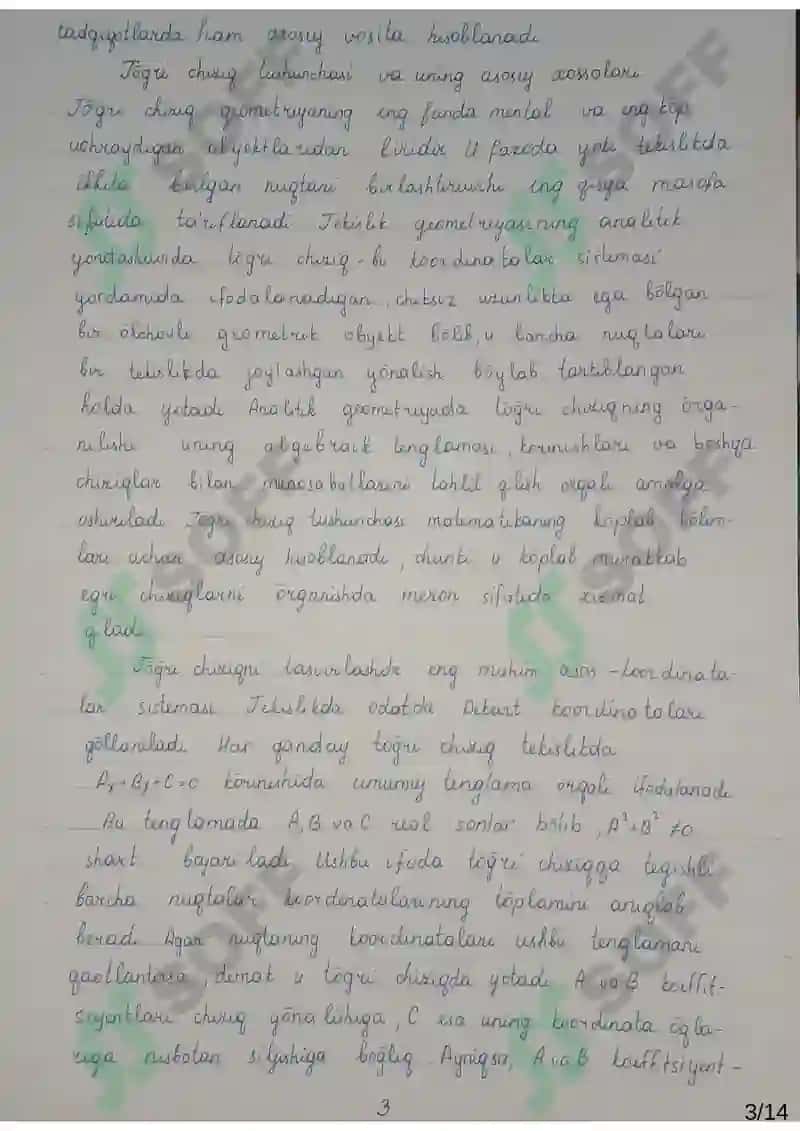 tadqiqotlarda ham asosiy vosita hisoblanadi
Tōg̃ri chiziq tushunchasi va uning asosiy xossalari
Tōg̃ri chiziq geometriyaning eng funda mental va eng kōp
uchraydigan obyektlaridan biridir U fazoda yoki tekislikda
ikkita bōlgan nuqtani birlashtiruvchi eng q-sqa masofa
sifatida ta'riflanadi Tekislik geometriyasining analitik
yondashuvida tōg̃ri chiziq - bu koordinatalar sistemasi
yordamida ifodalanadigan, cheksiz uzunlikka ega bōlgan
bir ōlchovli geometrik obyekt bōlib, u barcha nuqtalari
bir tekislikda joylashgan yōnalish bōylab tartiblangan
holda yotadi Analitik geometriyada tōg̃ri chiziqning ōrga-
nilishi uning algebraik tenglamasi, kōrinishlari va boshqa
chiziqlar bilan munosabatlarini tahlil qlish orqali amalga
oshiriladi Tōg̃ri chiziq tushunchasi matematikaning kōplab bōlim-
lari uchun asosiy hisoblanadi, chunki u koplab murakkab
egri chiziqlarni ōrganishda mezon sifatida xizmat
qiladi
Tōg̃ri chiziqni tasvirlashda eng muhim asos - koordinata-
lar sistemasi Tekislikda odatda Dekart koordinatalari
qōllaniladi Har qanday tōg̃ri chiziq tekislikda
Ax + By + C = 0 kōrinishida umumiy tenglama orqali ifodalanadi
Bu tenglamada A, B va C real sonlar bōlib, A² + B² ≠ 0
shart bajariladi Ushbu ifoda tōg̃ri chiziqqa tegishli
barcha nuqtalar koordinatalarining tōplamini aniqlab
beradi Agar nuqtaning koordinatalari ushbu tenglamani
qanoatlantirsa, demak u tōg̃ri chiziqda yotadi A va B koeffit-
siyentlari chiziq yōnalishiga, C esa uning koordinata ōqla-
riga nisbatan siljishiga bog̃liq Ayniqsa, A va B koeffitsiyent-
3
3/14
SOFF
SOFF
SOFF
SOFF
SOFF
SOFF